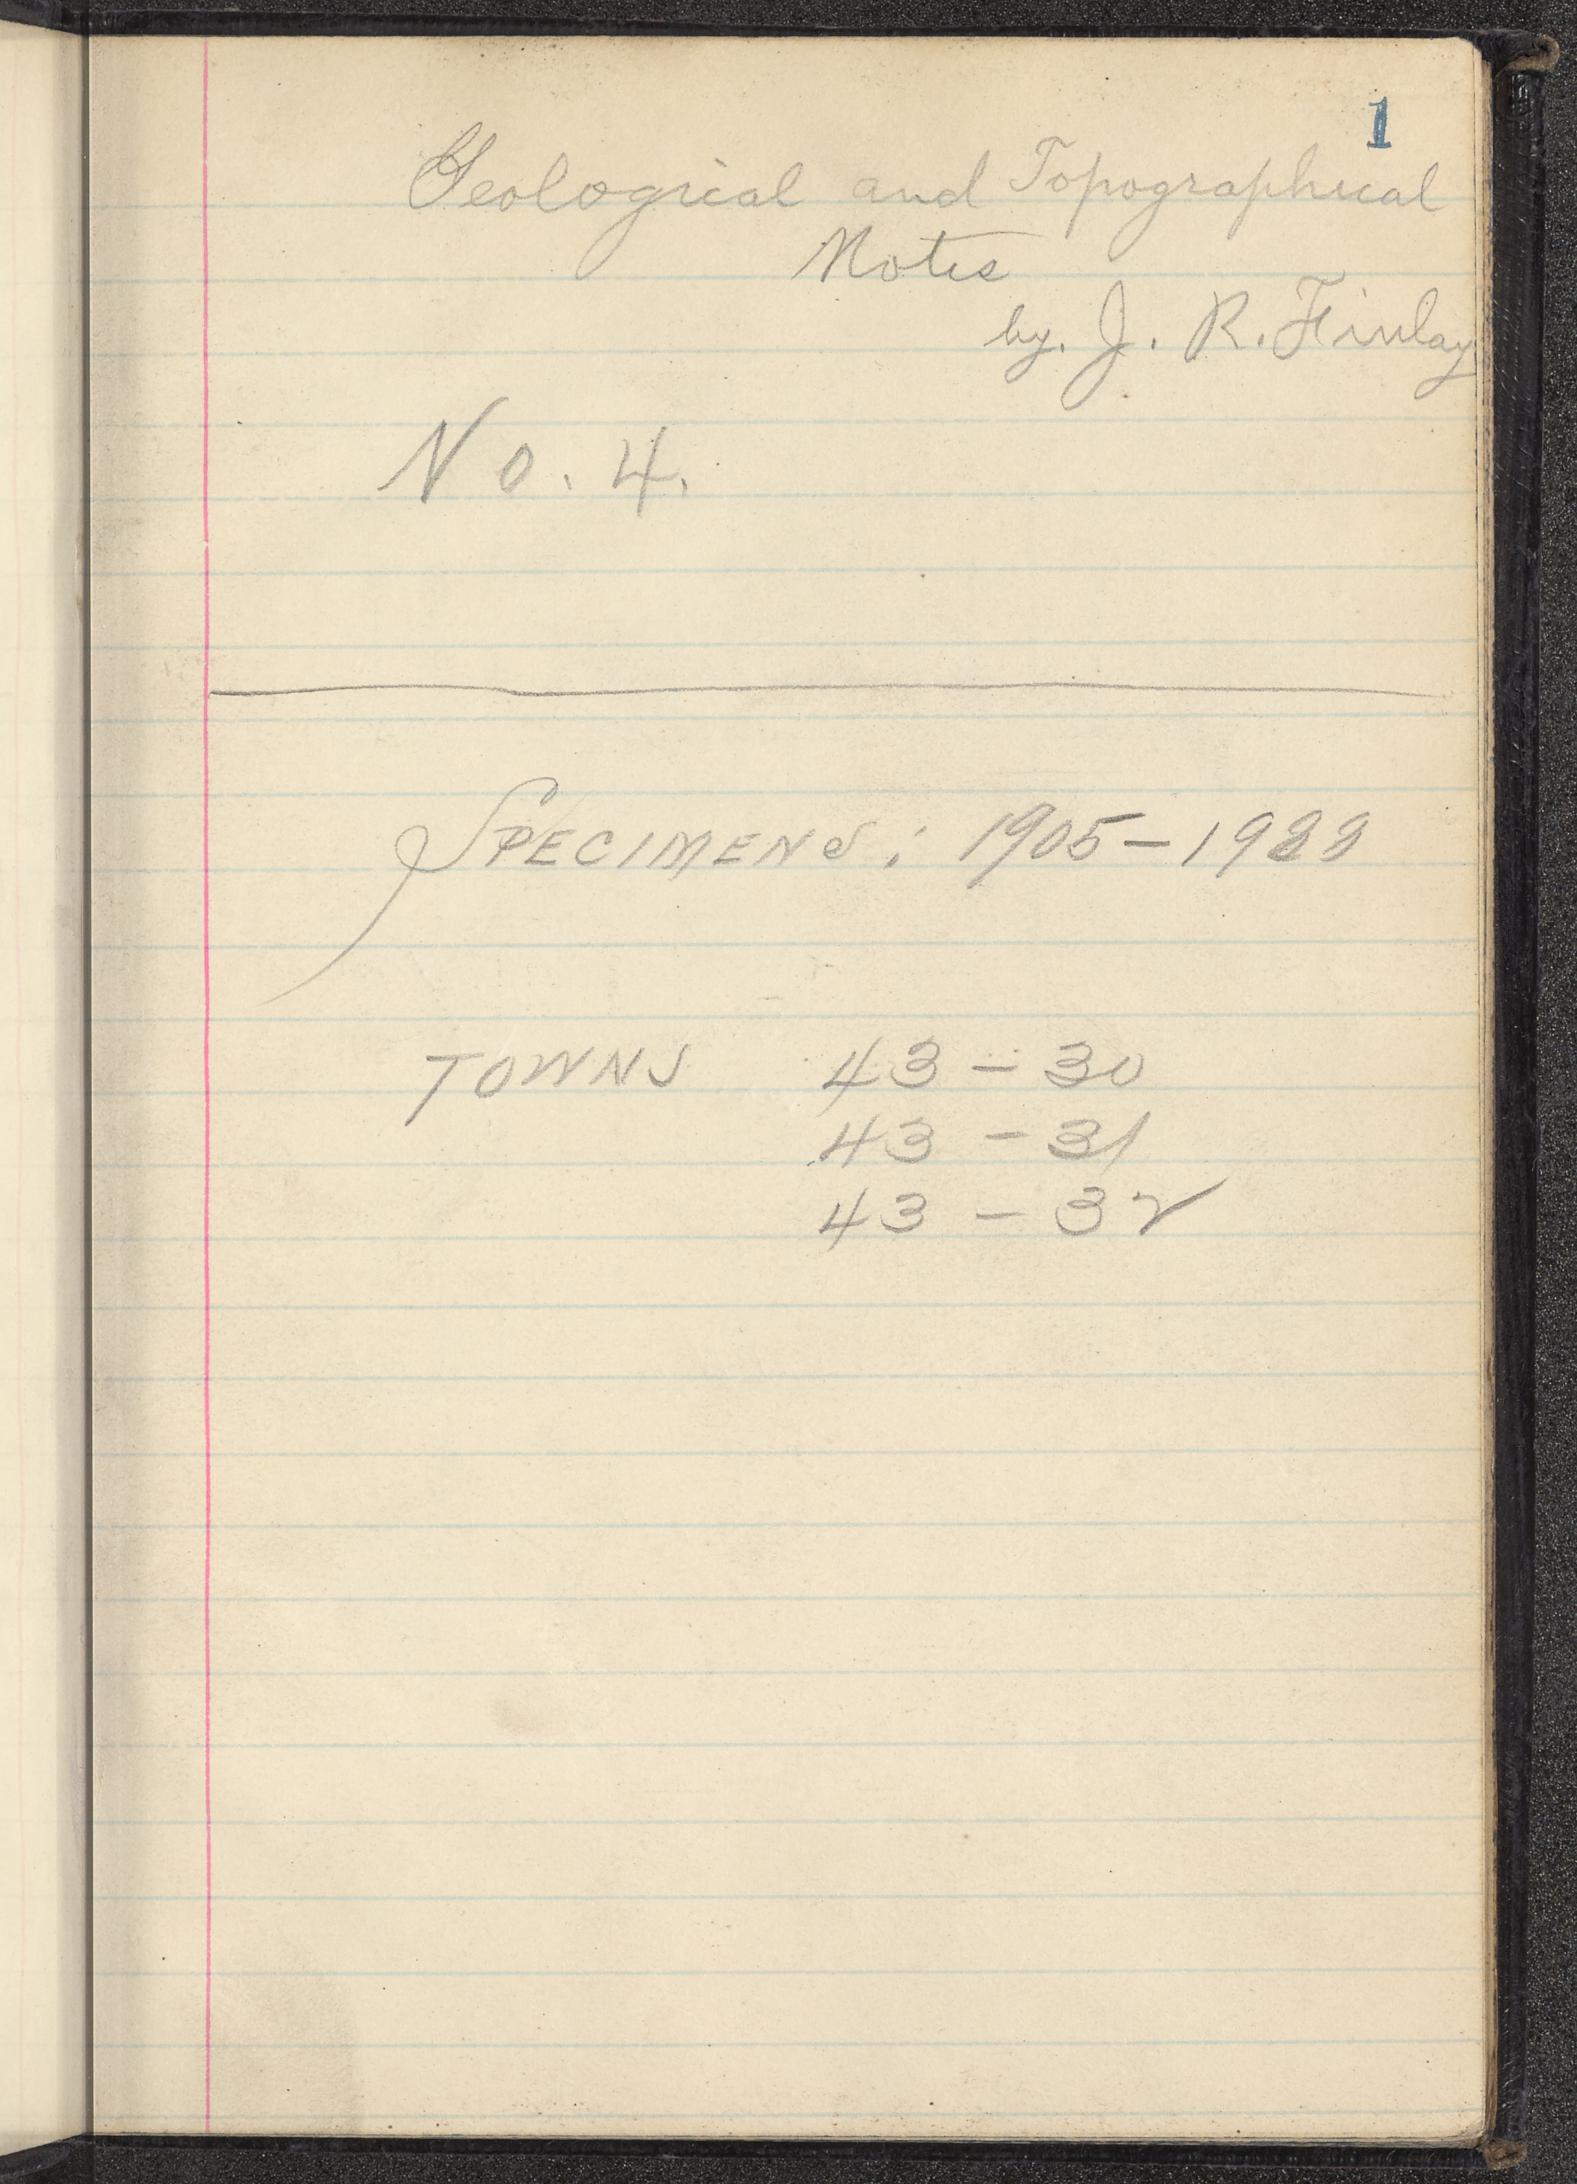 1
Geological and Topographical
Notes
by. J. R. Finlay
No. 4.
SPECIMENS: 1905-1988
TOWNS 43 - 30
43 - 31
43 - 32